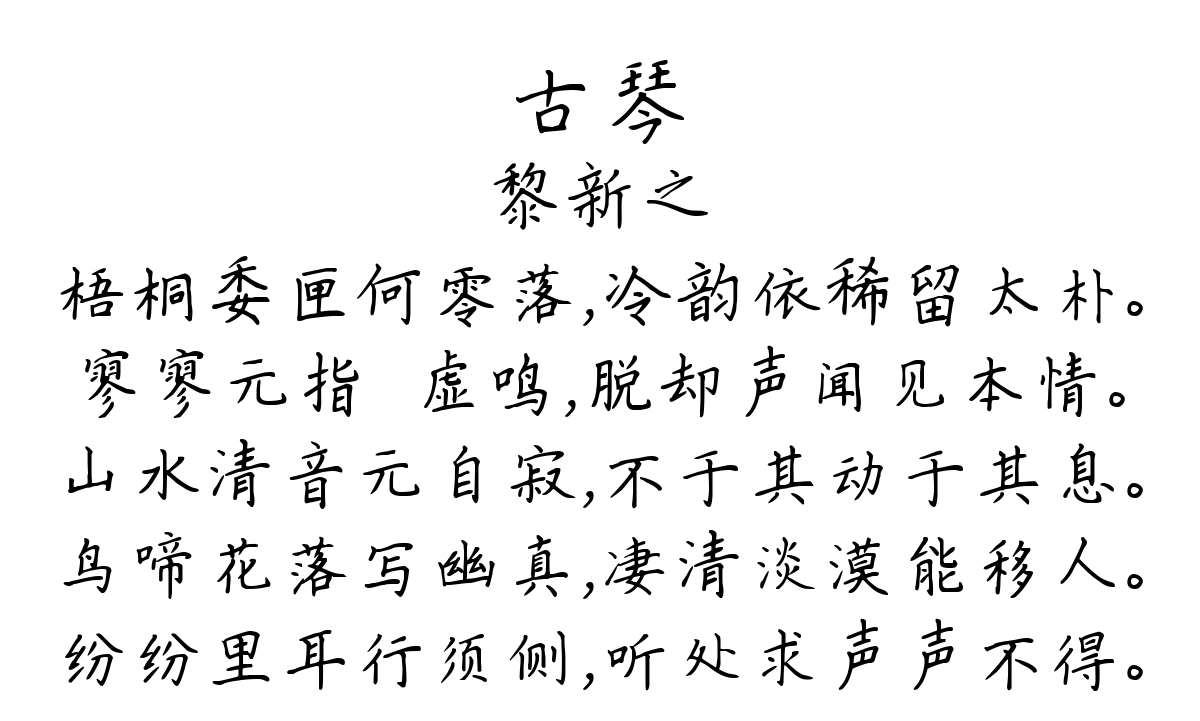 古琴
黎新之
梧桐委匣何零落,冷韵依稀留太朴。
寥寥元指 虚鸣,脱却声闻见本情。
山水清音元自寂,不于其动于其息。
鸟啼花落写幽真,凄清淡漠能移人。
纷纷里耳行须侧,听处求声声不得。